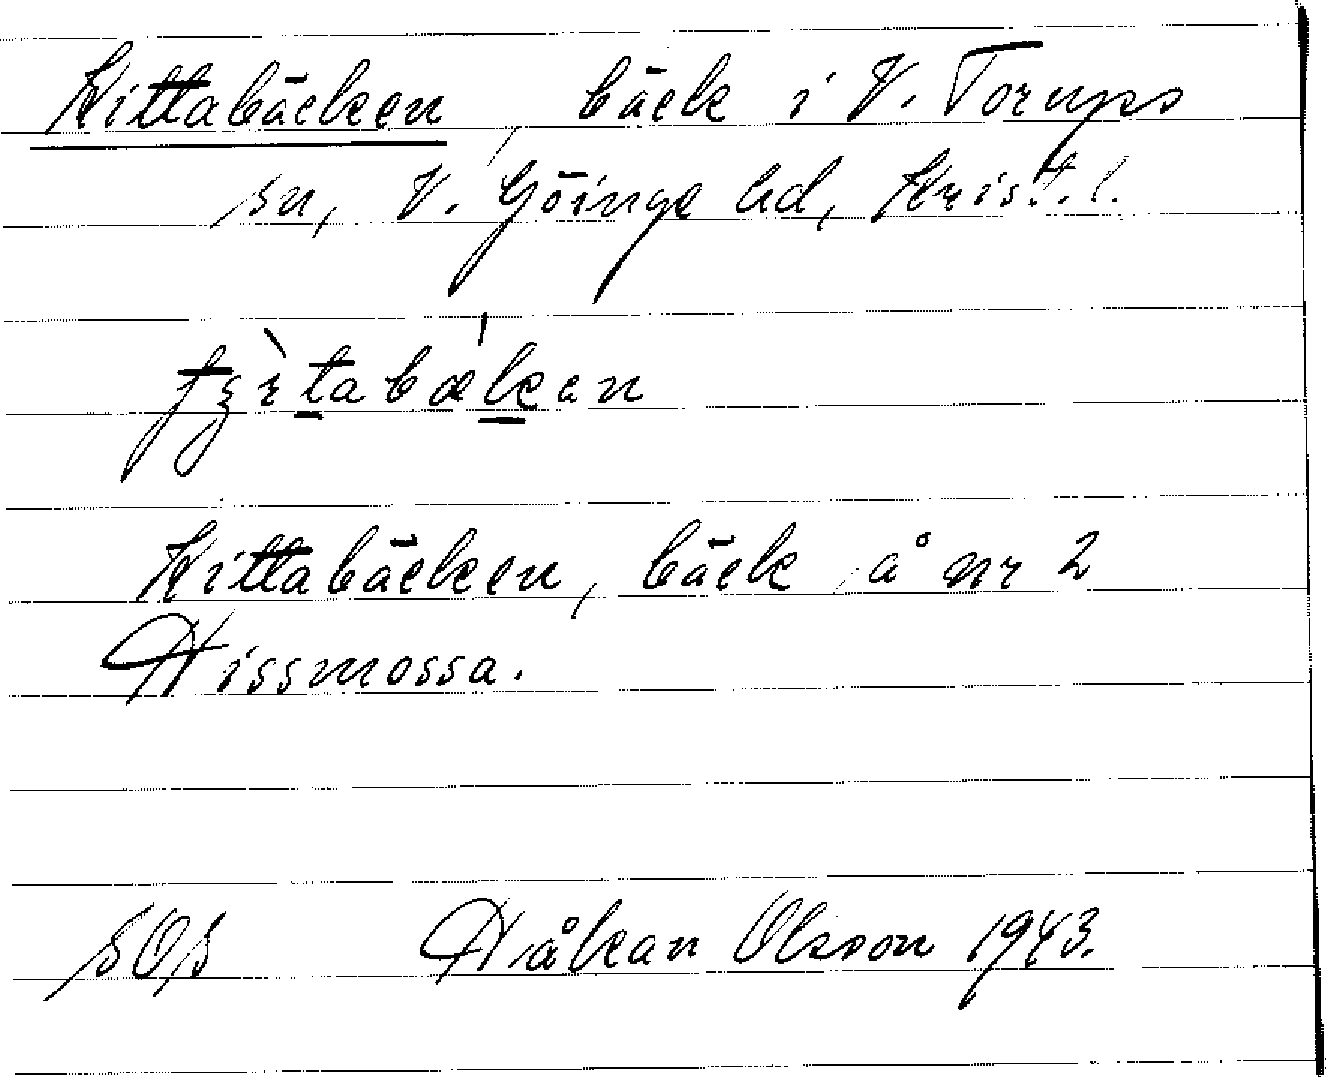 Kittabäcken, bäck i V. Torups
sn, V. Göinge hd, Krist. l.
Kittabäcken, bäck å nr 2
Hissmossa.
SOS Håkan Olsson 1943.